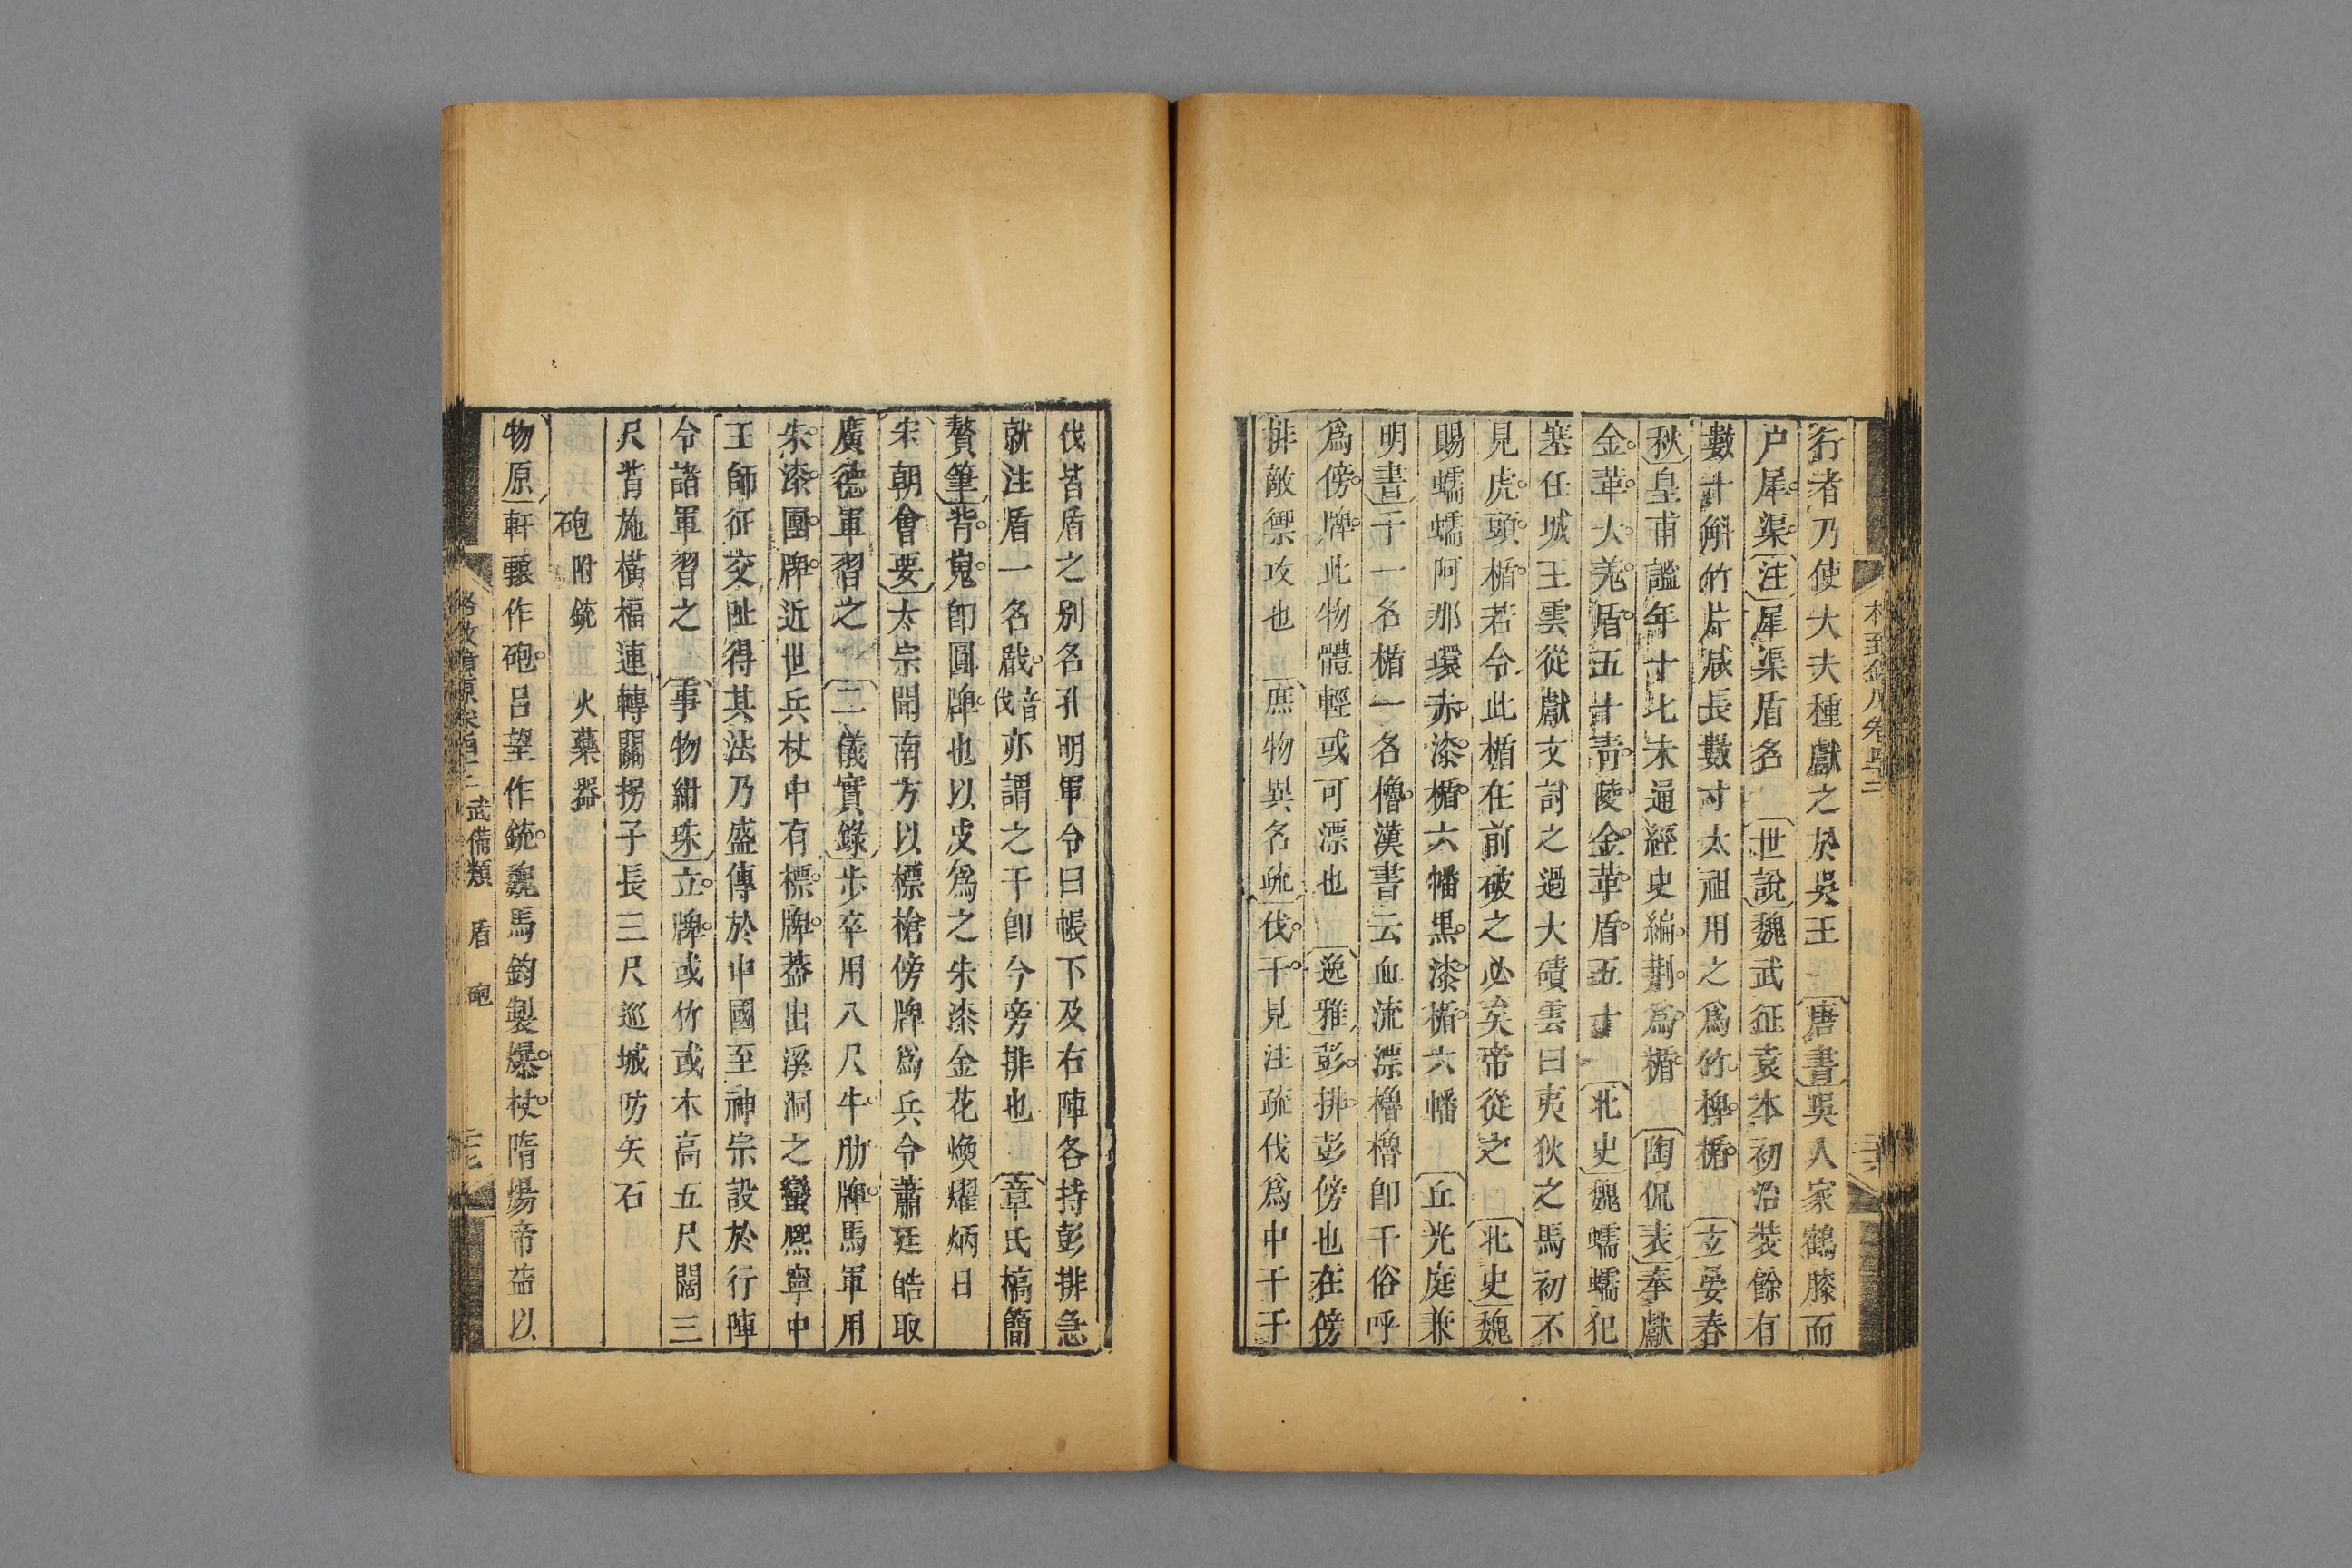 行者乃使大夫種獻之於吳王 唐書吳人家鶴膝而
户犀渠注犀渠盾名 世說魏武征袁本初治裝餘有
數十斛竹片咸長數寸太祖用之爲竹椑楯 玄晏春
秋皇甫謐年十七未通經史編荆爲楯 陶侃表奉獻
金華大羌盾五十青陵金華盾五十 北史魏蠕蠕犯
塞任城王雲從獻文討之過大磧雲曰夷狄之馬初不
見虎頭楯若令此楯在前破之必矣帝從之 北史魏
賜蠕蠕阿那環赤漆楯六幡黒漆楯六幡 丘光庭兼
明書干一名楯一名櫓漢書云血流漂櫓櫓卽干俗呼
爲傍牌此物體輕或可漂也 逸雅彭排彭傍也在傍
排敵禦攻也 庶物異名疏伐干見注疏伐爲中干干
伐皆盾之别名孔明軍令曰帳下及右陣各持彭排急
就注盾一名瞂音伐亦謂之干卽今旁排也 章氏槁簡
贅筆背嵬卽圓牌也以皮爲之朱漆金花煥耀炳日
宋朝會要太宗聞南方以標槍傍牌爲兵令蕭廷皓取
廣德軍習之 二儀實錄步卒用八尺牛肋牌馬軍用
朱漆團牌近世兵杖中有標牌葢出溪洞之蠻熈寧中
王師征交趾得其法乃盛傳於中國至神宗設於行陣
令諸軍習之 事物紺珠立牌或竹或木高五尺闊三
尺背施橫楅連轉關拐子長三尺巡城防矢石
砲 附銃 火藥器
物原軒轅作砲呂望作銃魏馬鈞製爆杖隋煬帝益以
格致鏡原卷四十二 武備類 盾 砲